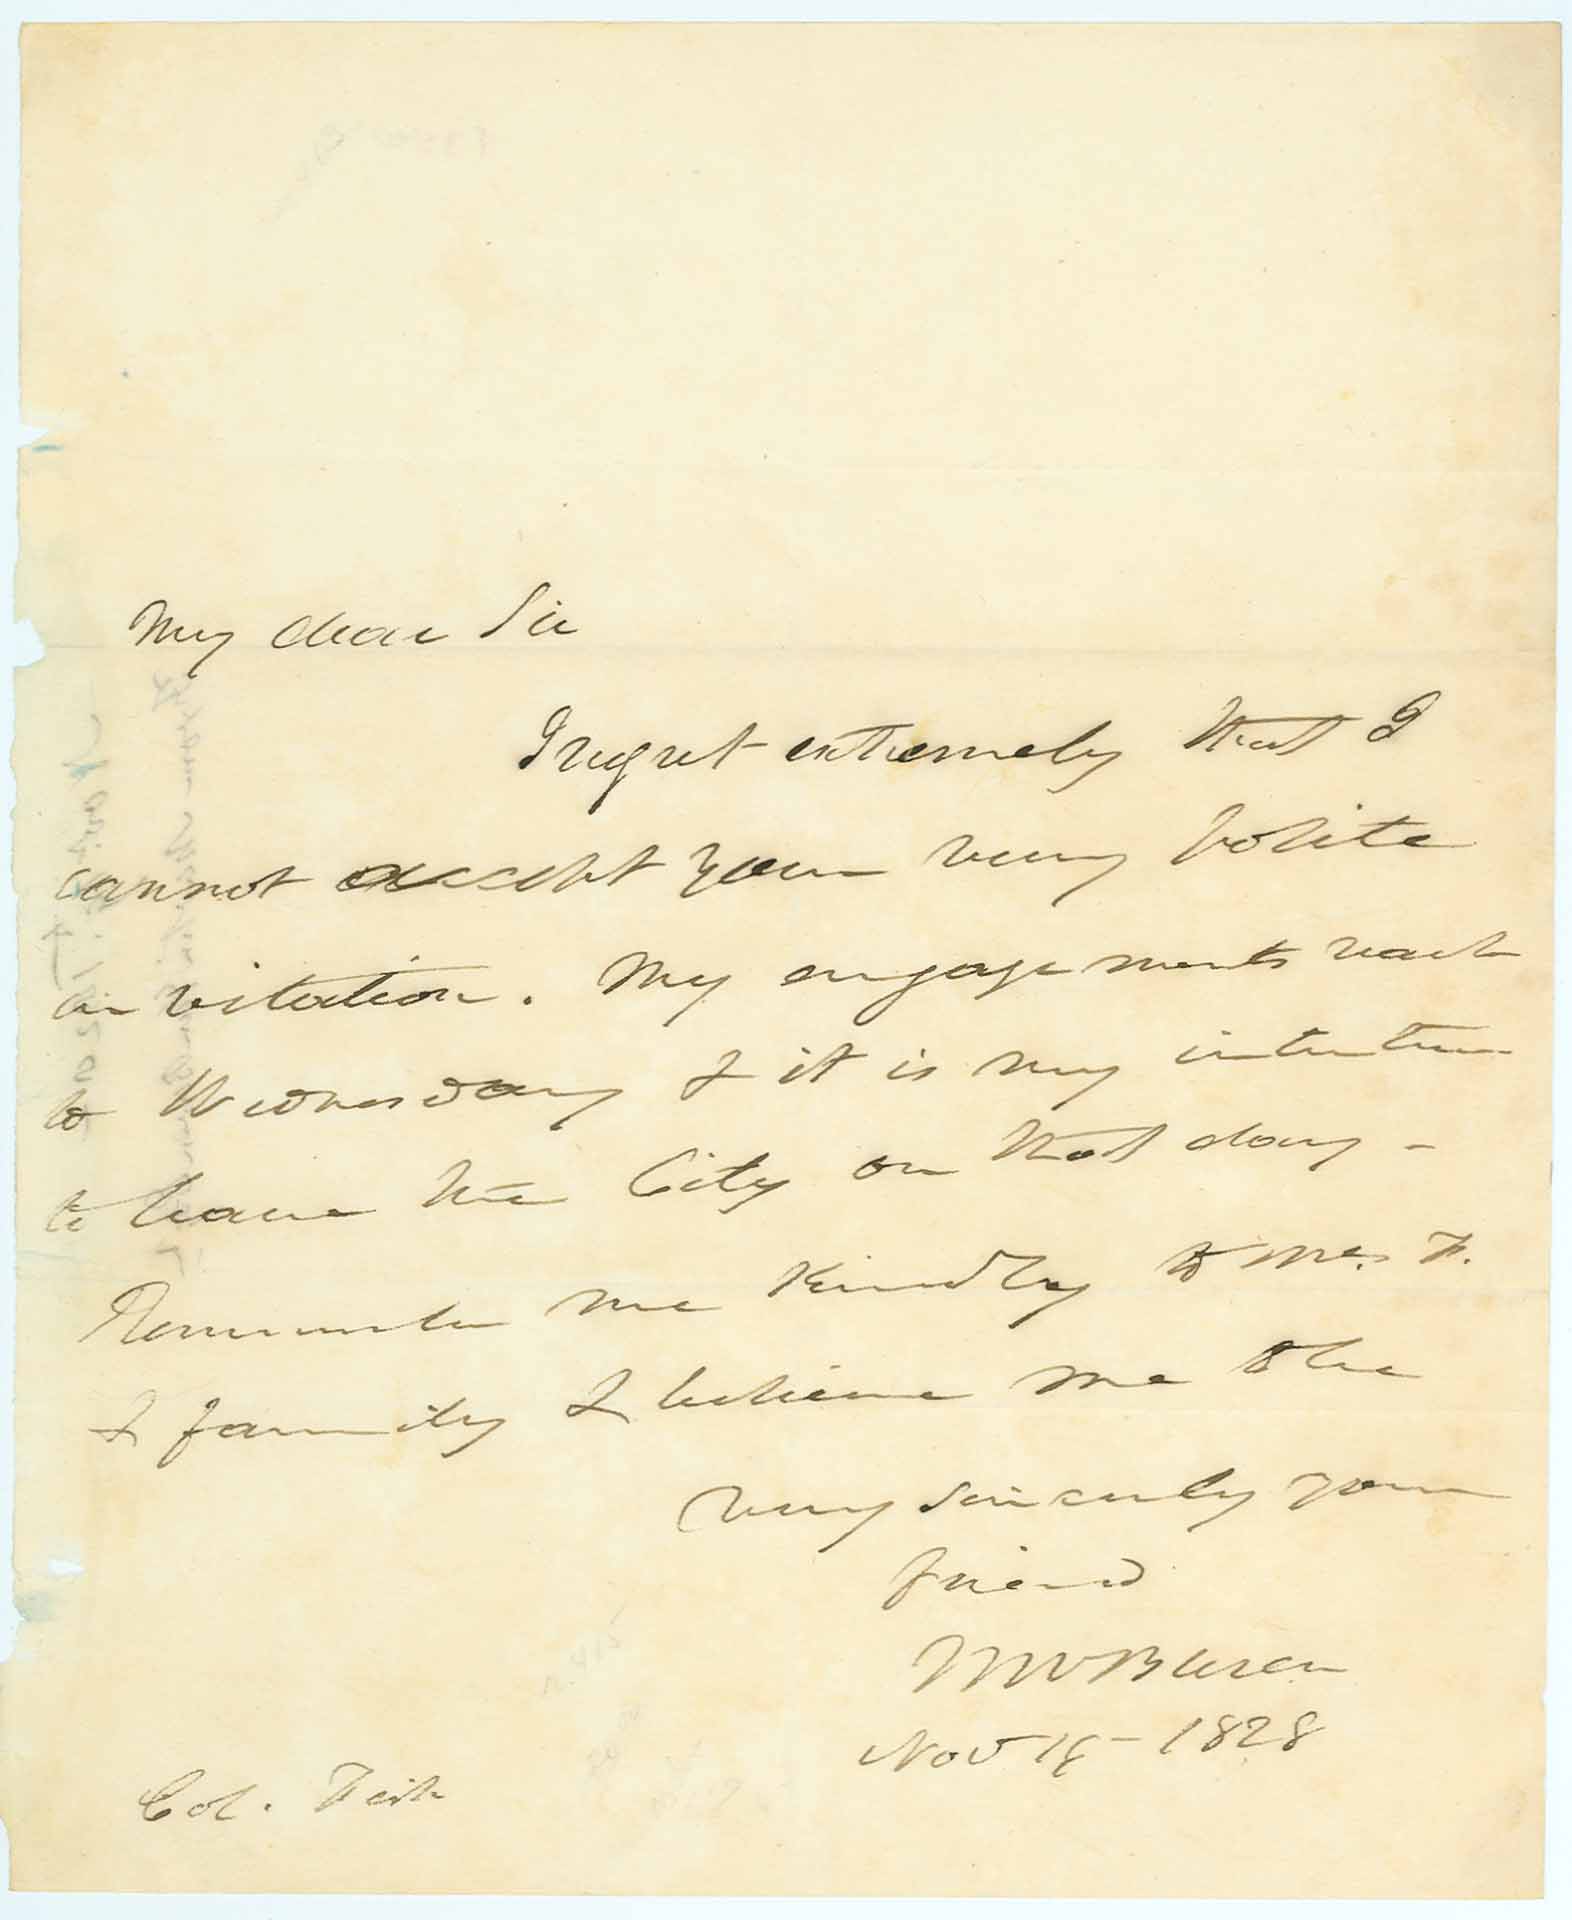 My dear Sir
I regret extremely that I
cannot accept your very polite
invitation. My engagements reach
to Wednesday & it is my intention
to leave the City on that day -
Remember me kindly to Mrs. F.
& family & believe me to be
very sincerely your
friend
MVBuren
Nov 16 - 1828
Col. Fish